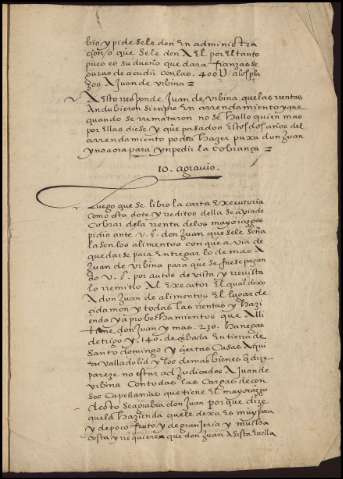 bio y pide se le den en administra
cion o que se le den A el por el tanto
pues es su dueño que dara fianzas se
guras de acudir con los 400 U a los pla
zos A juan de vibina =
A esto responde Juan de vibina que las rentas
Andubieron siempre en arrendamiento y que
quando se remataron no se hallo quien mas
por ellas diese y que pasados estos dos años del
arrendamiento podra hazer puxa don Juan
y no aora para ynpedir la cobranza =
10. agravio.
Luego que se libro la carta executoria
como esta dote y reditos della se avian de
Cobrar de la renta de los mayorazgos
pidio ante v. s. don Juan que se le seña
lasen los alimentos con que avia de
quedarse para entregar lo demas A
Juan de vibina para que se fuese pagan
do v. s. por autos de vista y revista
lo remitio Al executor el qual dexo
A don Juan de alimentos el lugar de
cidamon y todas las rentas y hazi
endo y aprobechamientos que Alli
tiene don Juan y mas 250 hanegas
de trigo y 140 de cebada en tierra de
santo domingo y ciertas casas Aqui
en valladolid y los demas bienes que dize
pareze no estar adjudicados A juan de
vibina Con todas las cargas de cen
sos Capellanias que tiene el mayorazgo
desto se agrabia don Juan porque dize
que la hazienda que le dexa es muy
y de poco fruto y de granjeria y mucha
costa y requiere que don Juan asista en ella